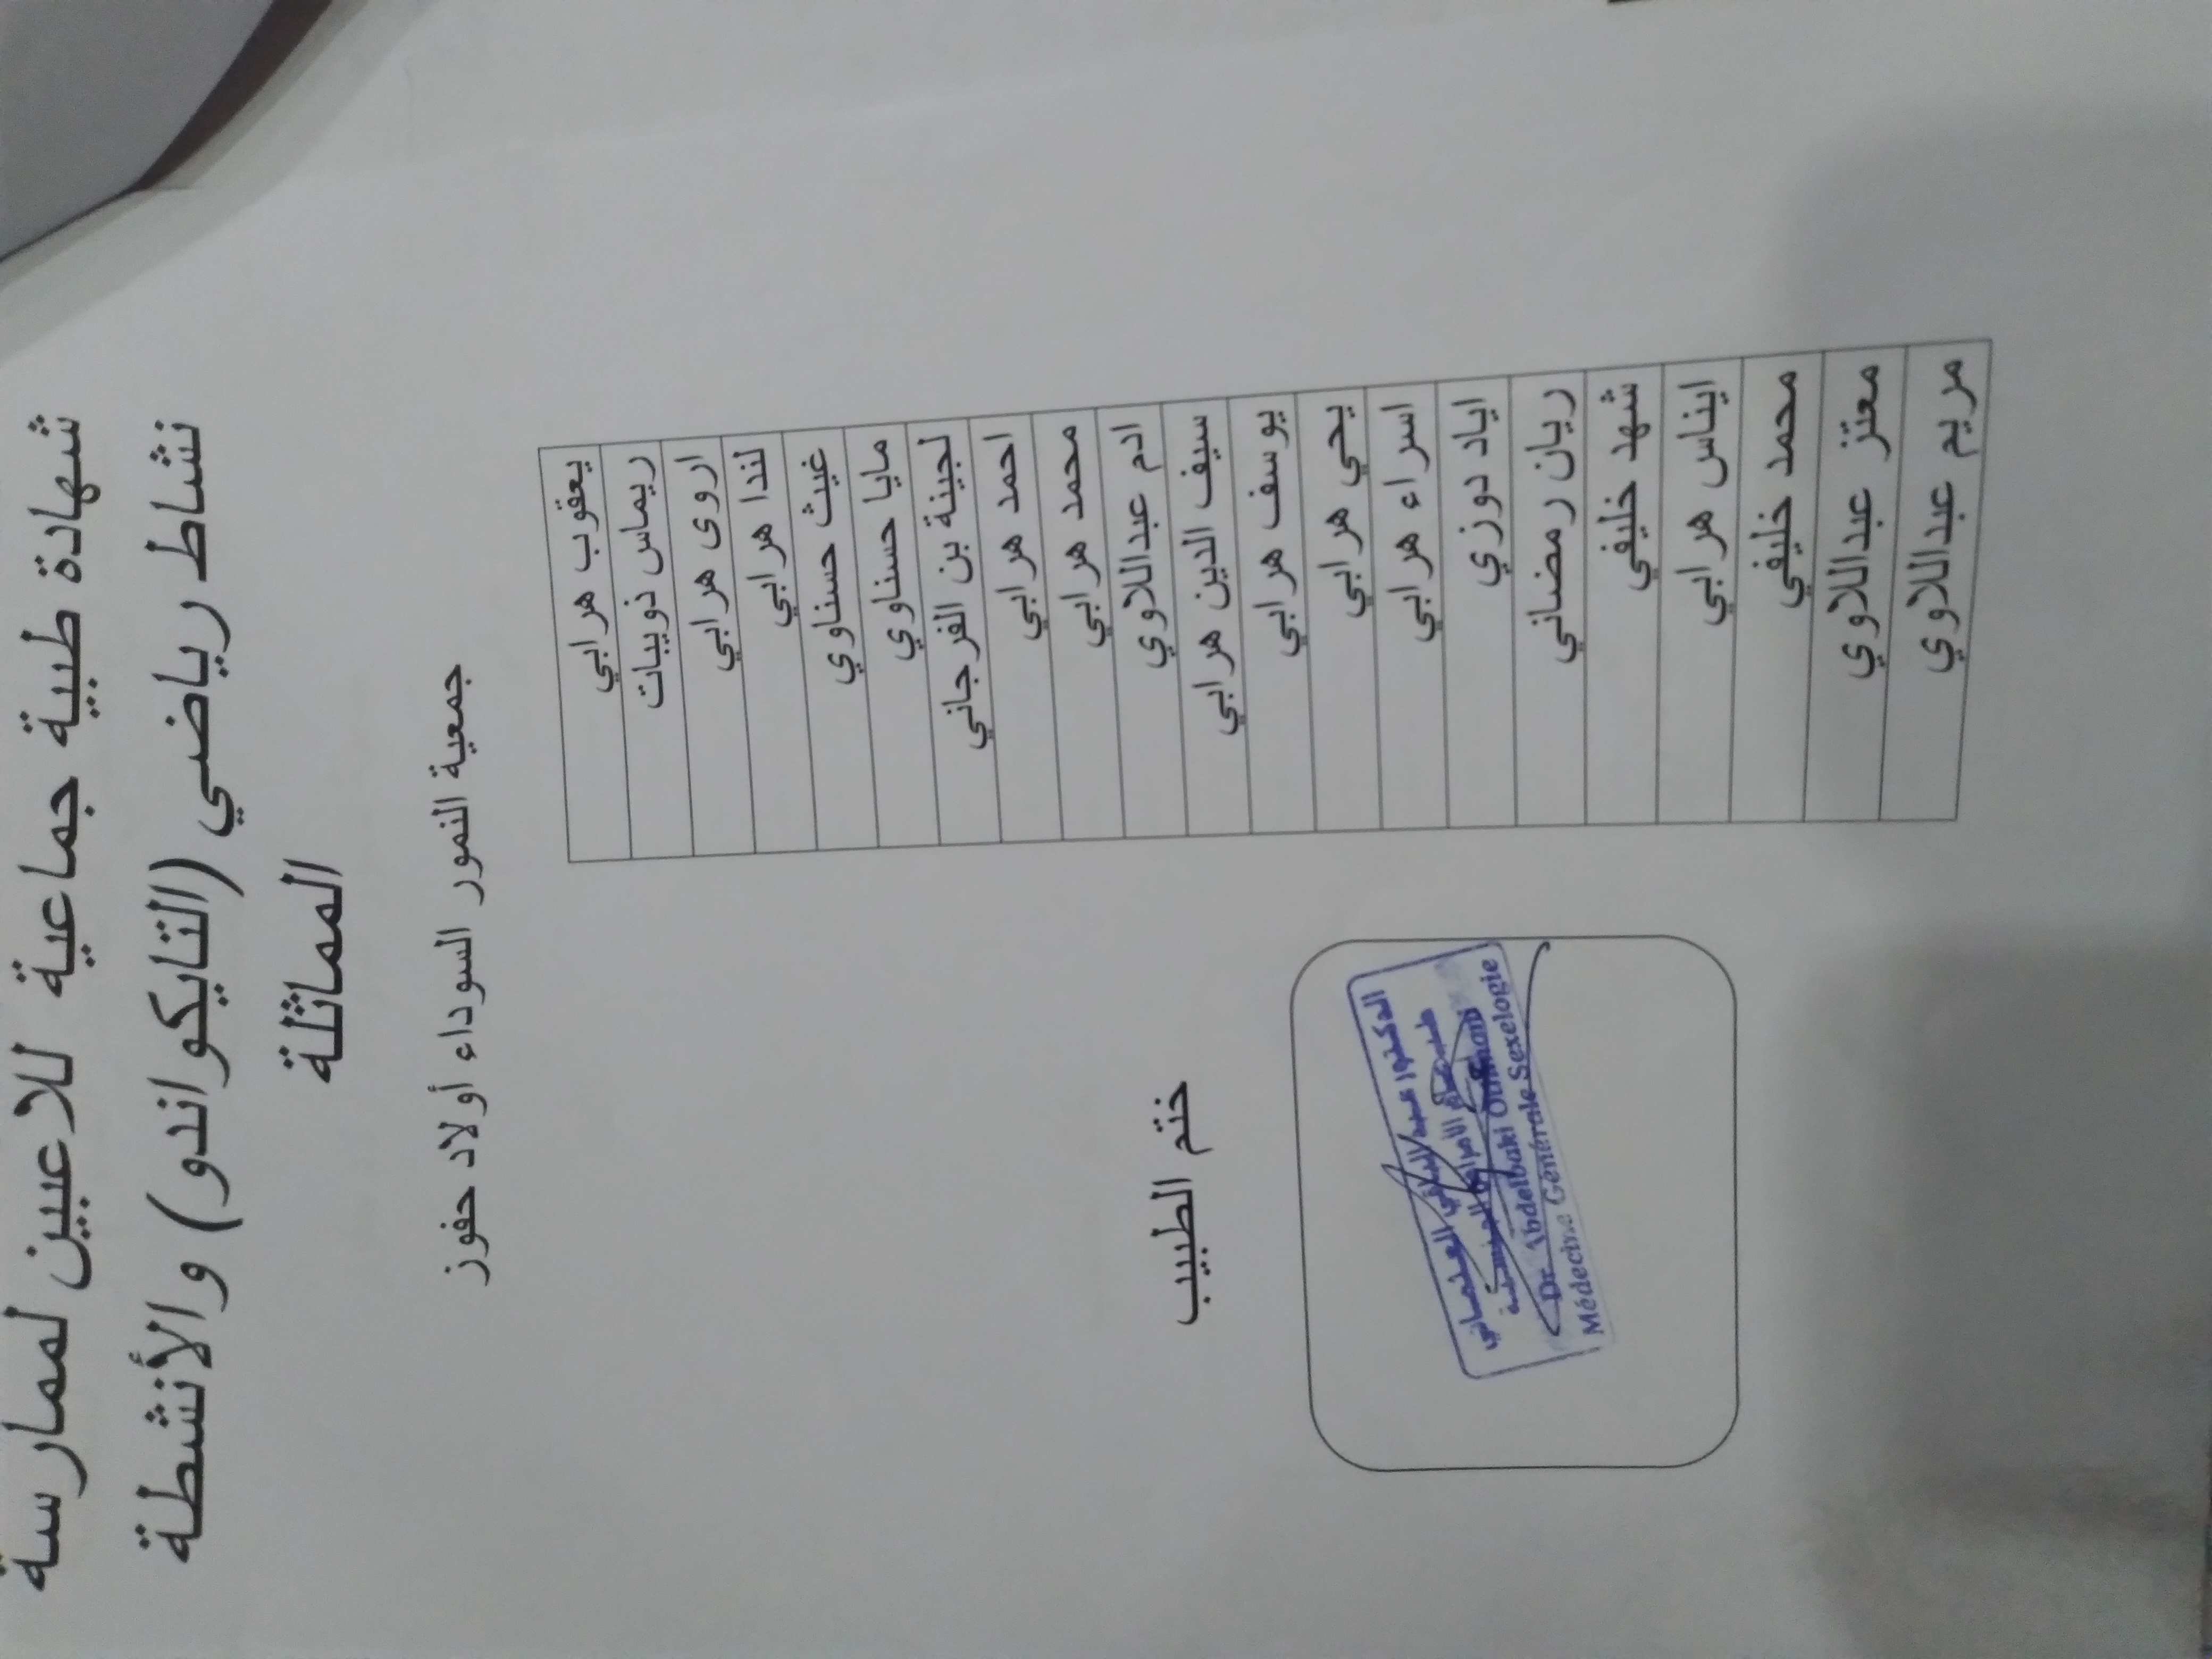 شهادة طبية جماعية للاعبين لممارسة
نشاط رياضي (التايكواندو) والأنشطة
المماثلة
جمعية النمور السوداء أولاد حفوز
يعقوب هرابي
ريماس ذويبات
اروى هرابي
لندا هرابي
غيث حسناوي
مايا حسناوي
لجينة بن الفرجاني
احمد هرابي
محمد هرابي
ادم عبداللاوي
سيف الدين هرابي
يوسف هرابي
يحي هرابي
اسراء هرابي
اياد دوزي
ريان رمضاني
شهد خليفي
ايناس هرابي
محمد خليفي
معتز عبداللاوي
مريم عبداللاوي
ختم الطبيب
الدكتور عبد الباقي العثماني
طب عام الأمراض الجنسية
Dr. Abdelbaki
Médecine Générale Sexelogie